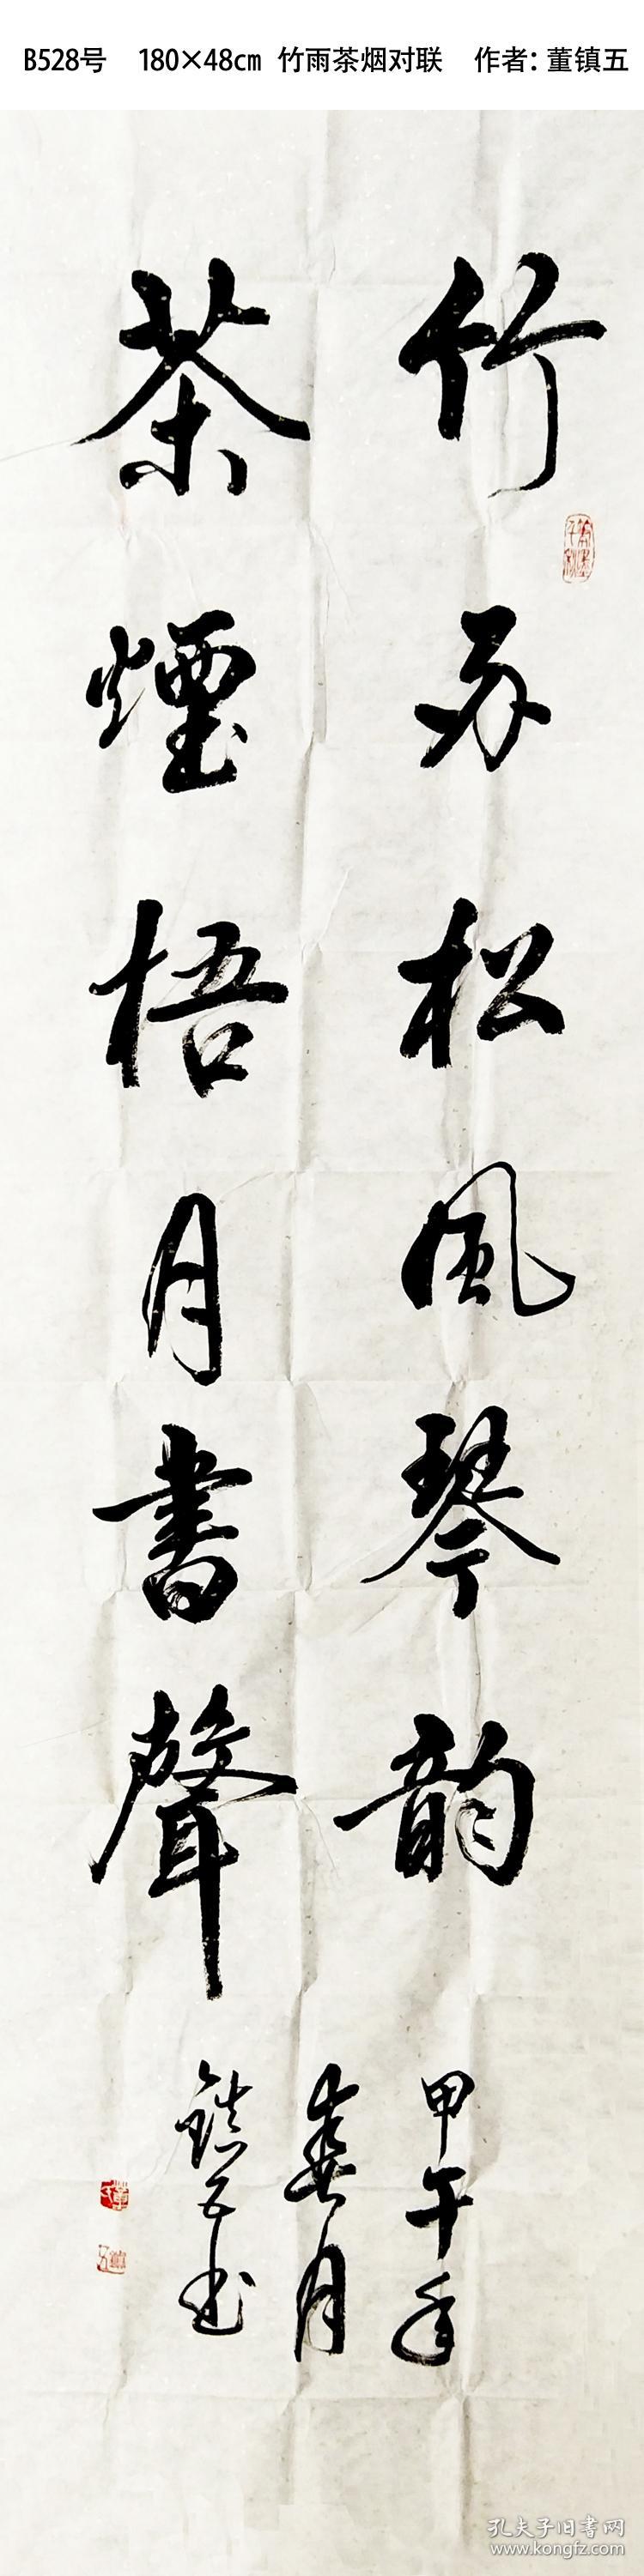 B528号 180×48㎝ 竹雨茶烟对联 作者：董镇五
竹雨松風琴韵
茶煙梧月書聲
甲午年
春月
镇五书
孔夫子旧書网
www.kongfz.com